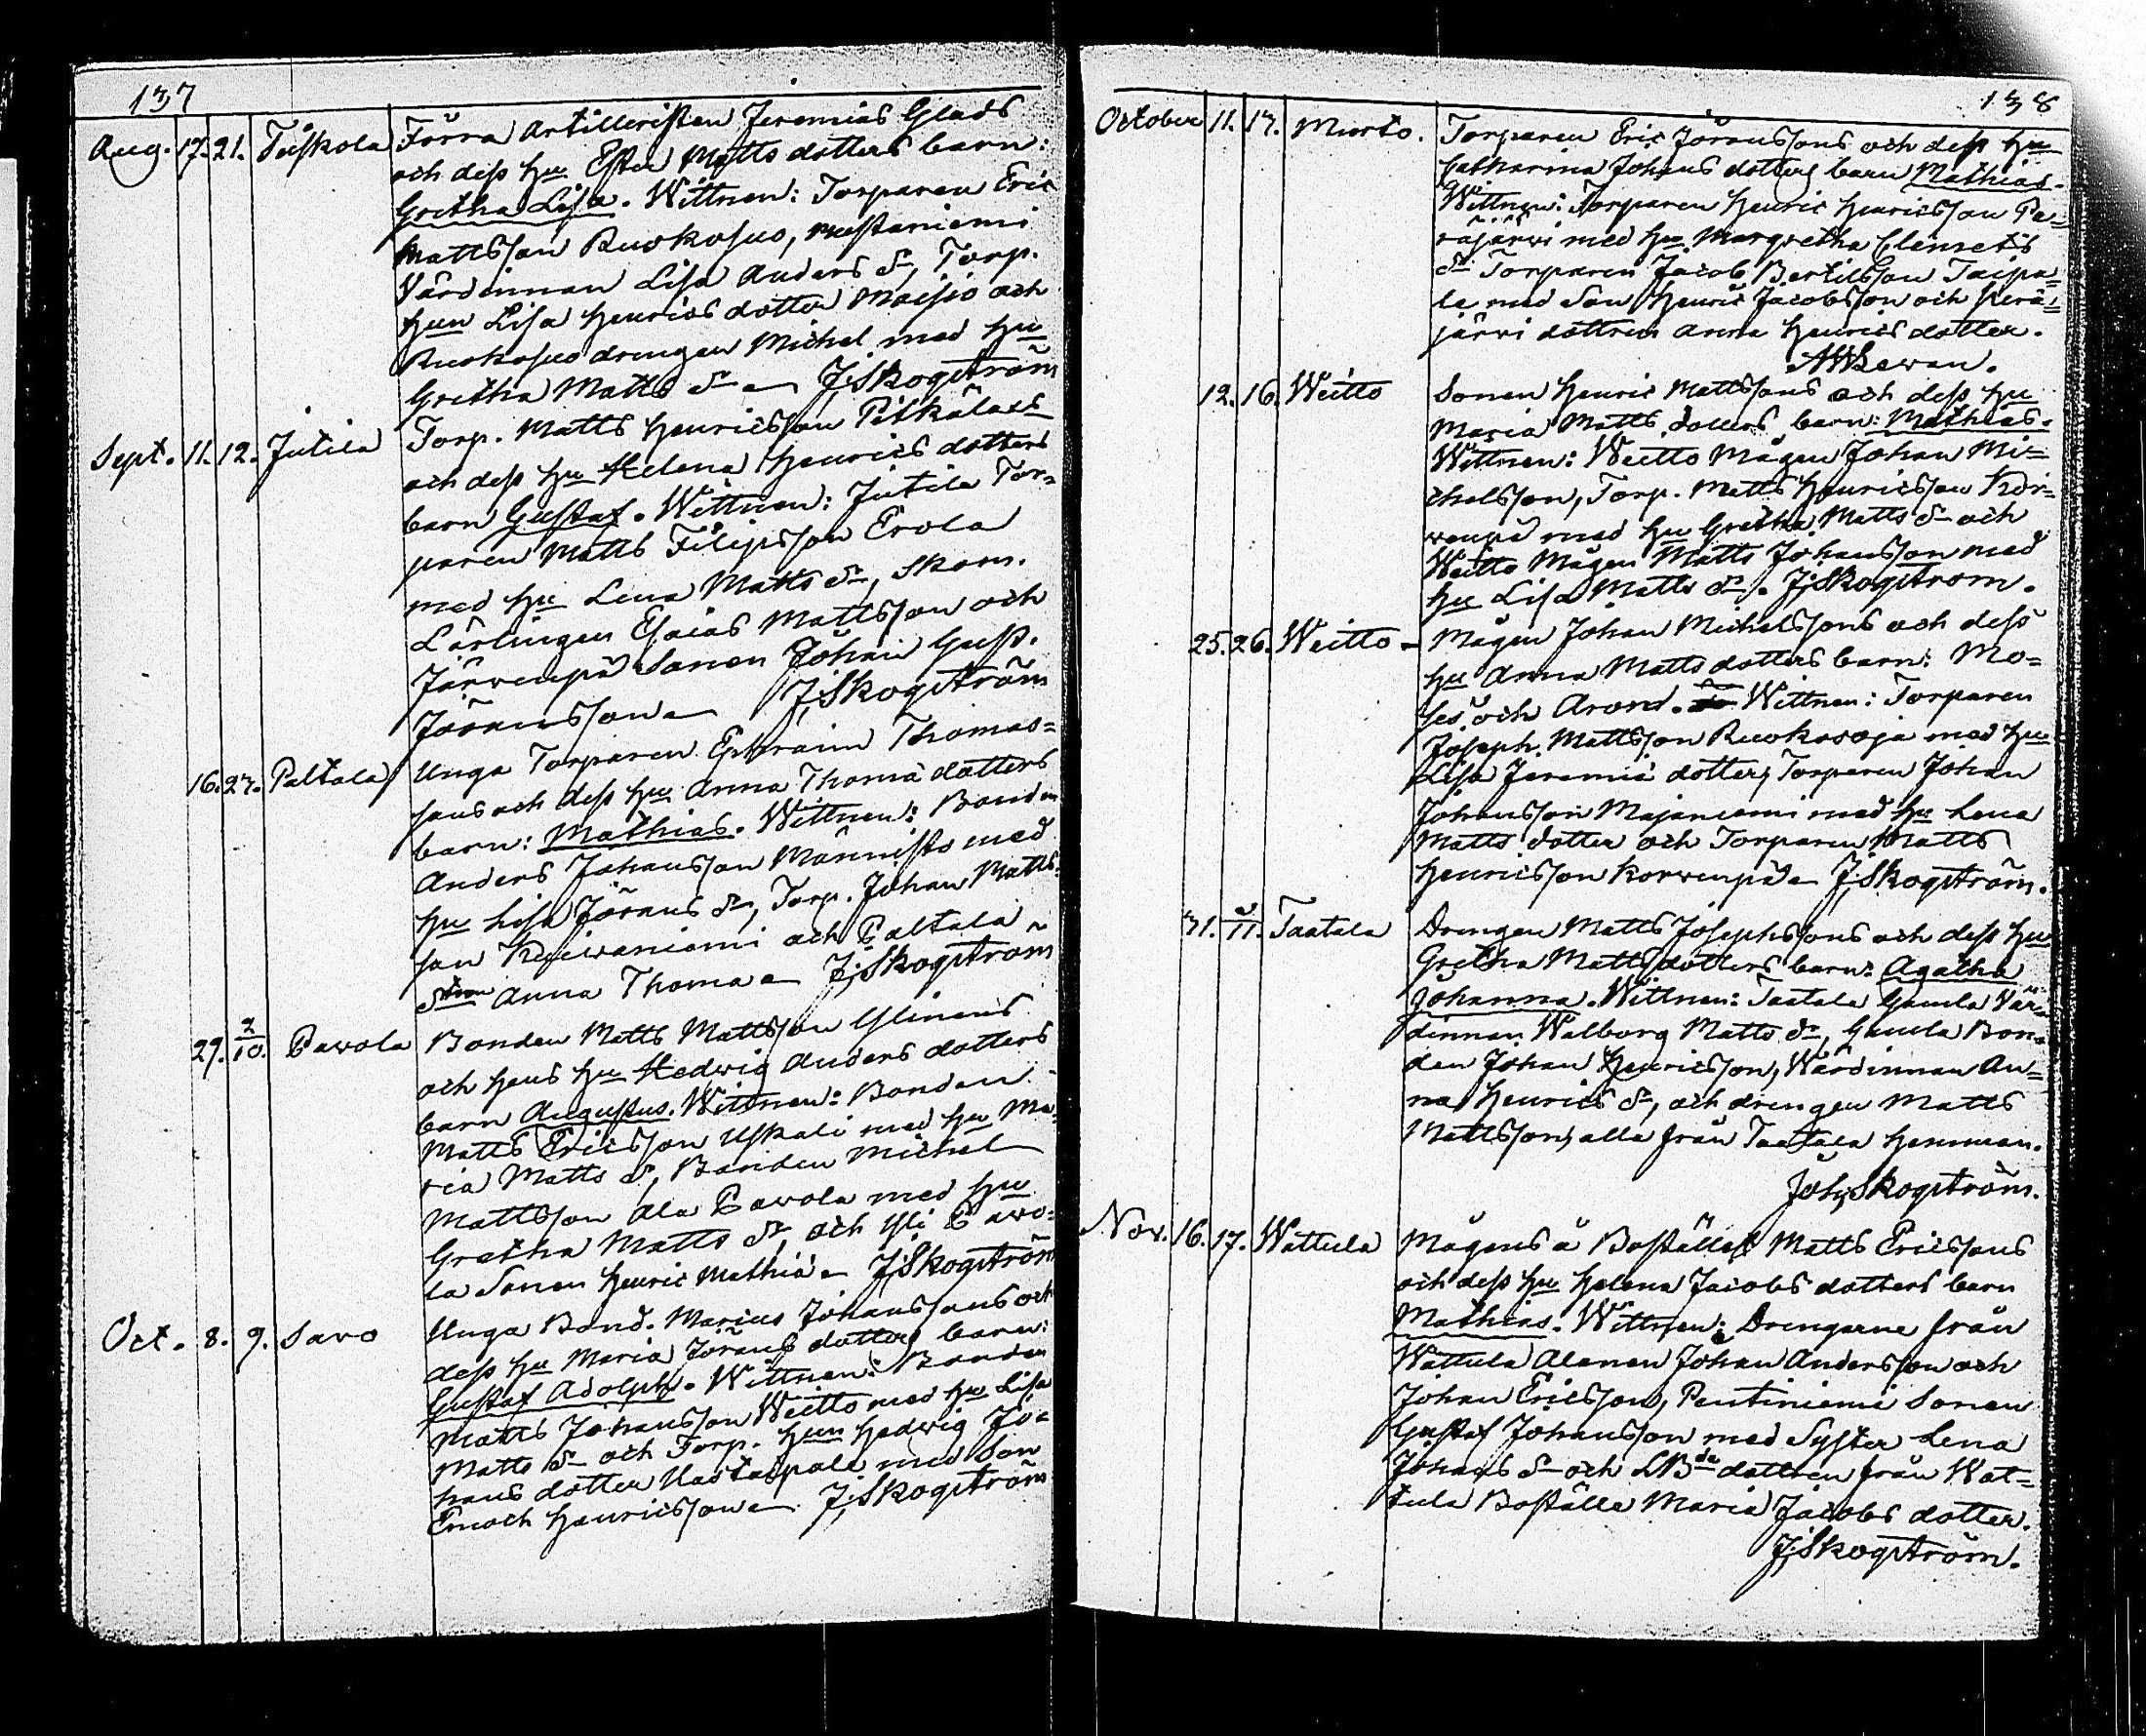 137
Aug. 17. 21. Tuiskola Förra Artilleristen Jeremias Glads
och dess hu Ester Matts dotters barn:
Gretha Lisa. Wittnen: Torparen Eric
Mattsson Ruokosuo, Mustaniemi
Värdinnan Lisa Anders dr, Torp.
hun Lisa Henrics dotter Maisio och
Ruokosuo drengen Michel med hu
Gretha Matts dr J. Skogström
Sept. 11. 12. Jutila Torp. Matts Henricsson Pitkälass
och dess hu Helena Henrics dotters
barn Gustaf. Wittnen: Jutila Tor=
paren Matts Filipsson Erola
med hu Lena Matts dr, Skom.
Lärlingen Esaias Mattsson och
Järvenpä Sonen Johan Gust.
Göransson J. Skogström
16. 27. Paltala Unga Torparen Ephraim Thomas=
sons och dess hu Anna Thomä dotters
barn: Mathias. Wittnen: Bonden
Anders Johansson Männistö med
hu Lisa Görans dr, Torp. Johan Matts=
son Kuivaniemi och Paltala
dttren Anna Thomæ J. Skogström
29. 2/10. Pavola Bonden Matts Mattsson Ylinens
och hans hu Hedwig Anders dotters
barn Augustus. Wittnen: Bonden
Matts Ericsson Uskali med hu Ma=
ria Matts dr, Bonden Michel
Mattsson Ala Pavola med hu
Gretha Matts dr, och Yli Pavo=
la Sonen Henric Mathiæ J. Skogström
Oct. 8. 9. Savo Unga Bond. Marius Johanssons och
dess hu Maria Görans dotters barn:
Gustaf Adolph. Wittnen: Bonden
Matts Johansson Weitto med hu Lisa
Matts dr och Torp. hun Hedwig Jo=
hans dotter Uastaipale med Son
Enoch Henricsson J. Skogström
138
October 11. 17. Murto. Torparen Eric Göranssons och dess hu
Catharina Johans dotters barn Mathias.
Wittnen: Torparen Henric Henricsson Pe=
räjärvi med hu Margretha Clemets
dr Torparen Jacob Bertilsson Taipa=
le med Son Henric Jacobsson och Perä=
järvi dottren Anna Henrics dotter.
12. 16. Weitto Sonen Henric Mattssons och dess hu
Maria Matts dotters barn: Mathias.
Wittnen: Weitto Mågen Johan Mi=
chelsson, Torp. Matts Henricsson Kor=
venpä med hu Gretha Matts dr och
Weitto Mågen Matts Johansson med
hu Lisa Matts dr. J. Skogström.
25. 26. Weitto Mågen Johan Michelssons och dess
hu Anna Matts dotters barn: Mo=
ses och Arond. Wittnen: Torparen
Joseph Mattsson Ruokosoja med hu
Lisa Jeremiæ dotter, Torparen Johan
Johansson Majaniemi med hu Lena
Matts dotter och Torparen Matts
Henricsson Korvenpä J. Skogström.
31. 2/11. Taatala Drengen Matts Josephssons och dess hu
Gretha Matts dotters barn: Agatha
Johanna. Wittnen: Taatala Gamla Vär=
dinnan Walborg Matts dr, Gamla Bon=
den Johan Henricsson, Wärdinnan An=
na Henrics dr, och drengen Matts
Mattsson, alla från Taatala hemman.
Joh. Skogström.
Nov. 16. 17. Wattula Mågens å Bostället Matts Ericssons
och dess hu Helena Jacobs dotters barn
Mathias. Wittnen: Drengarne från
Wattula Alanen Johan Andersson och
Johan Ericsson, Pentiniemi Sonen
Gustaf Johansson med Syster Lena
Johans dr och LBde dottren från Wat=
tula Boställe Maria Jacobs dotter.
J. Skogström.